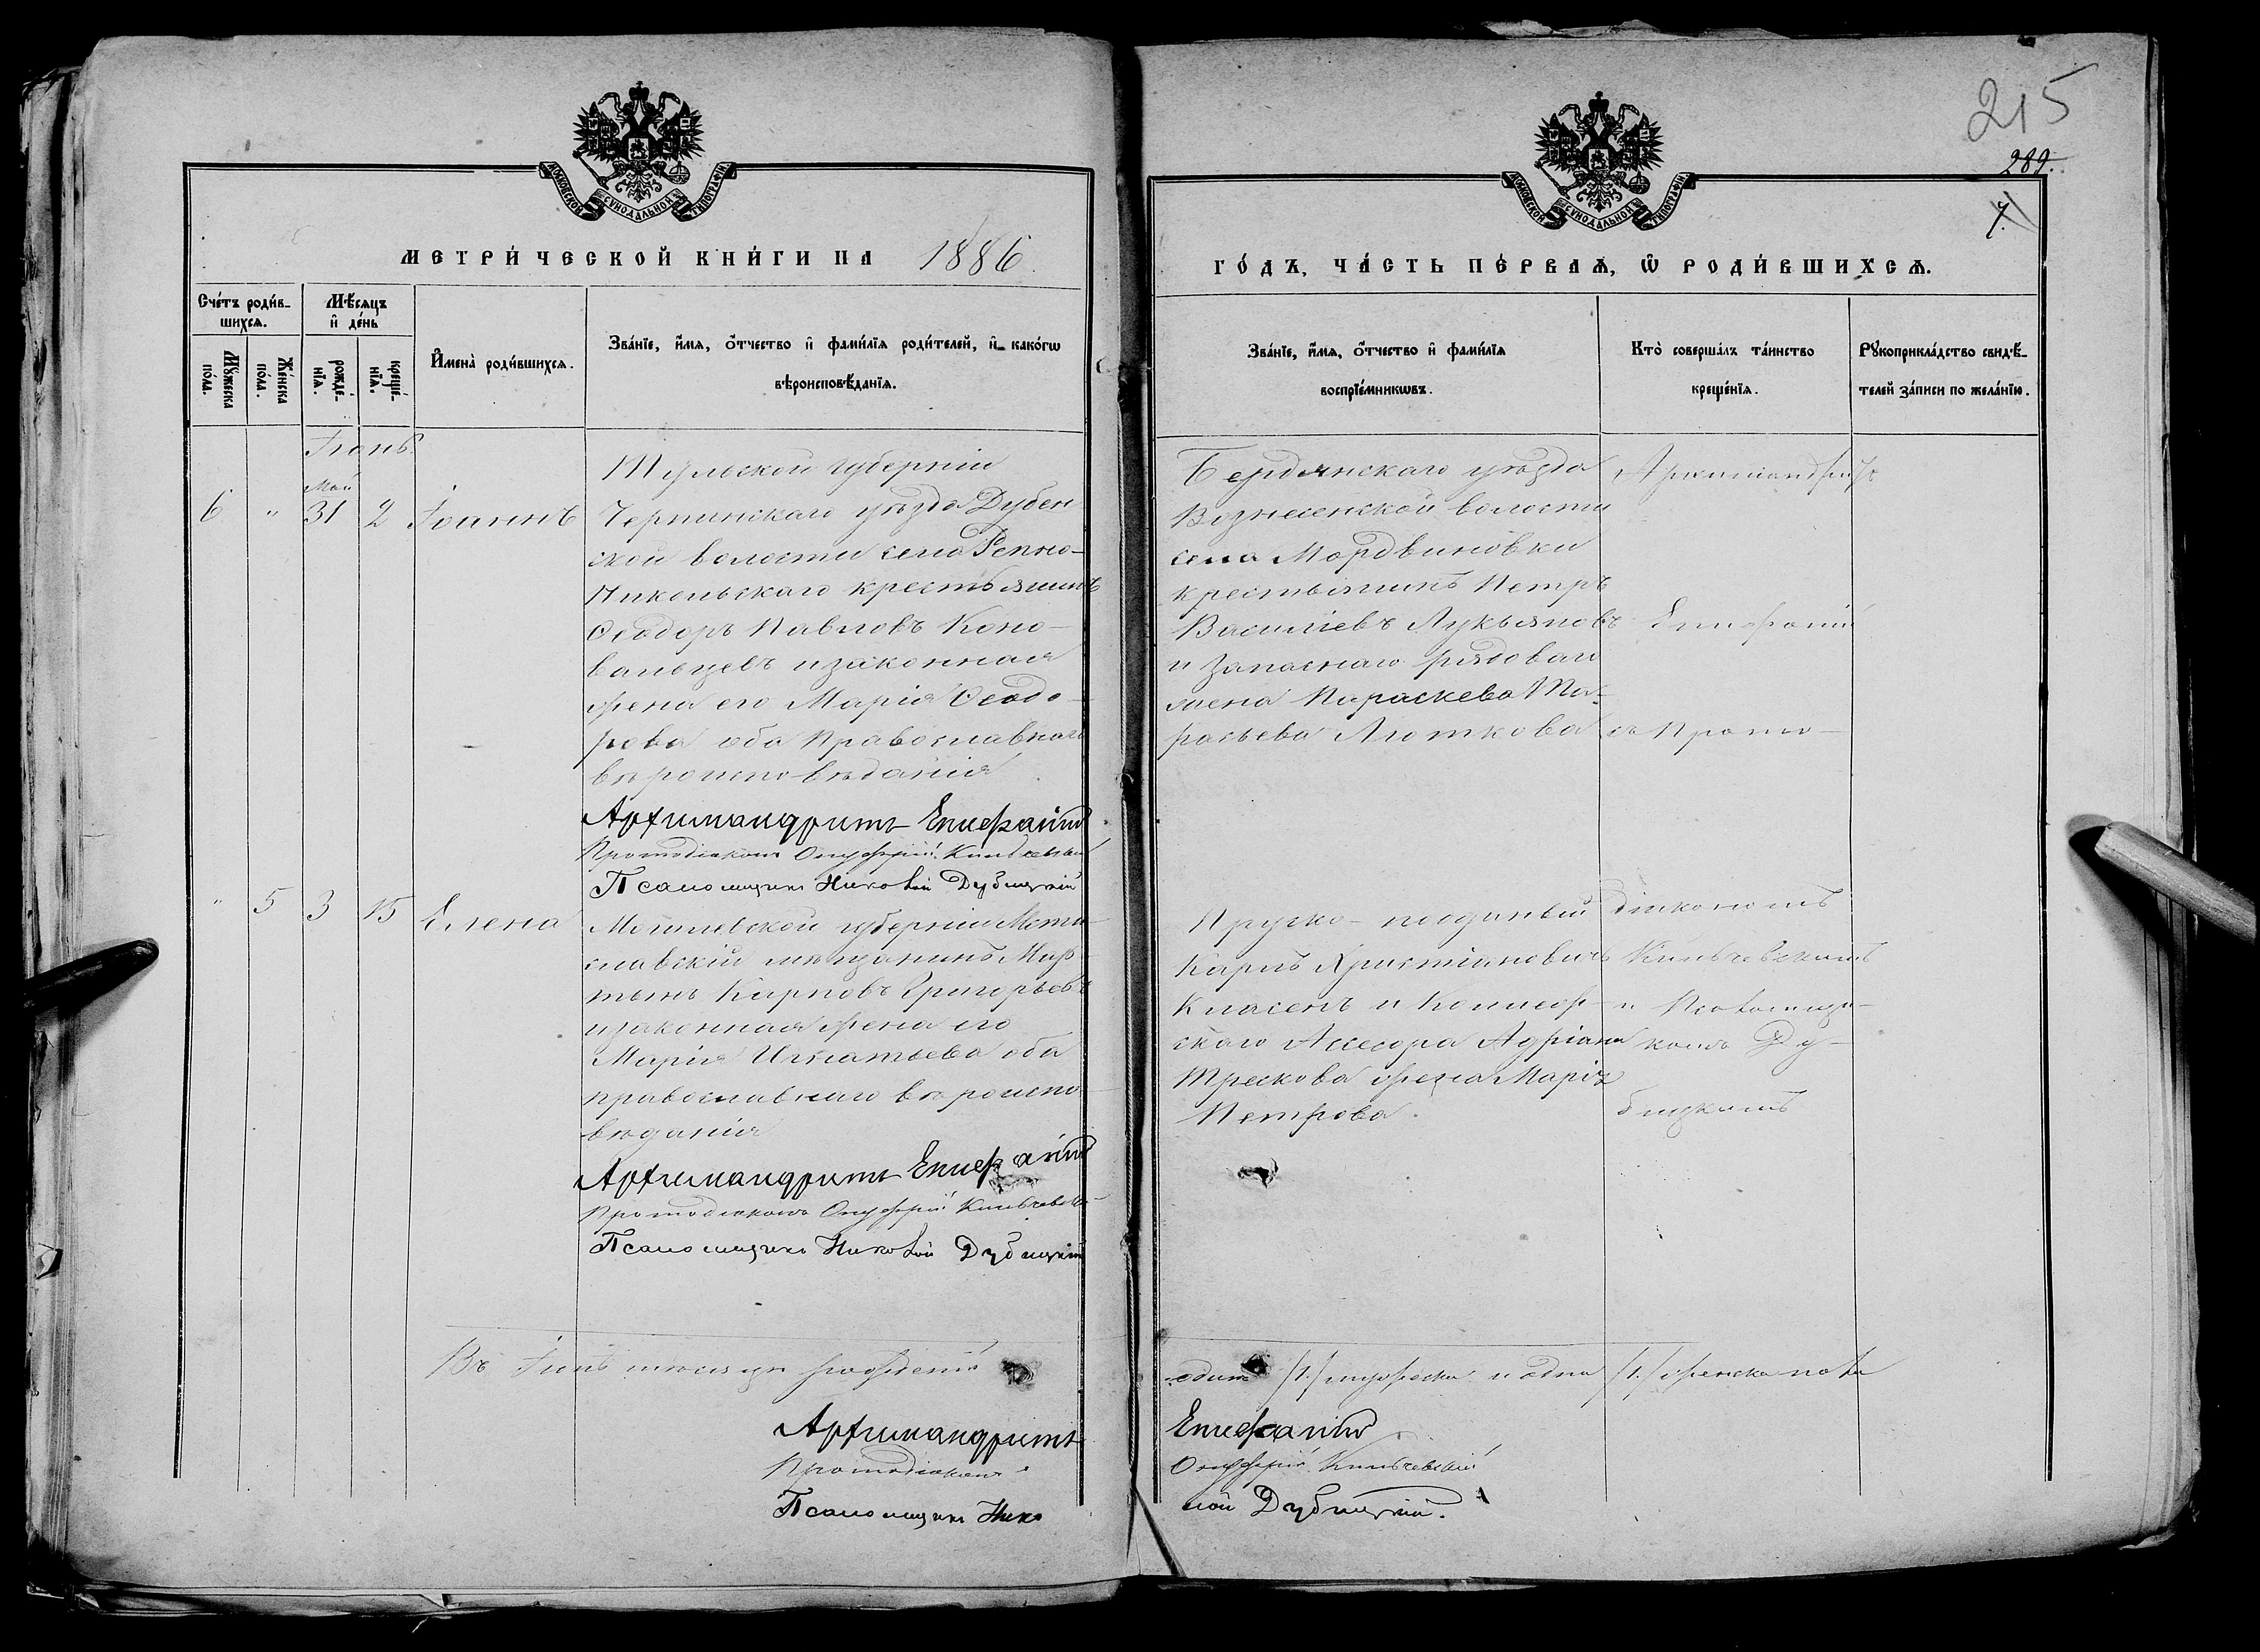 МОСКОВСКОЙ СѴНОДАЛЬНОЙ ТИПОГРАФІИ
МЕТРИ́ЧЕСКОЙ КНИ́ГИ НА 1886
Сче́тъ роди́в-
шихсѧ.
Мꙋ́жеска
по́ла.
Же́нска
по́ла.
Мѣ́сѧцъ
и҆ де́нь
рожде́-
нїѧ.
креще́-
нїѧ.
И҆мена̀ роди́вшихсѧ.
Зва́нїе, и҆́мѧ, ѻ҆́тчество и҆ фами́лїѧ роди́телей, и҆ како́гѡ
вѣроисповѣ́данїѧ.
Іюнь
Май
6 " 31 2 Іоаннъ
Тульской губерніи
Чернинскаго уѣзда Дубен
ской волости села Репно-
Никольскаго крестьянинъ
Ѳеодоръ Павловъ Коно-
вальцевъ и законная
жена его Марія Ѳеодо-
рова оба Православнаго
вѣроисповѣданія
Архимандритъ Епифаній
Протодіаконъ Онуфрій Кильчевскій
Псаломщикъ Николай Дубицкій
" 5 3 15 Елена
Могилевской губерніи Мсти-
славскій мѣщанинъ Мар-
тынъ Карповъ Григорьевъ
и законная жена его
Марія Игнатьева оба
православнаго вѣроиспо-
вѣданія
Архимандритъ Епифаній
Протодіаконъ Онуфрій Кильчевскі
Псаломщикъ Николай Дубицкій
Въ Іюнѣ мѣсяцѣ рожденъ
Архимандритъ
Протодіаконъ
Псаломщикъ Нико
215
289.
7.
МОСКОВСКОЙ СѴНОДАЛЬНОЙ ТИПОГРАФІИ
ГО́ДЪ, ЧА́СТЬ ПЕ́РВАѦ, Ѡ҆ РОДИ́ВШИХСѦ.
Зва́нїе, и҆́мѧ, ѻ҆́тчество и҆ фами́лїѧ
воспрїе́мникѡвъ.
Кто̀ соверша́лъ та́инство
креще́нїѧ.
Рꙋкоприкла́дство свидѣ́-
телей за́писи по жела́нїю.
Бердянскаго уѣзда
Вознесенской волости
села Мордвиновки
крестьянинъ Петръ
Василіевъ Лукьяновъ
и запаснаго рядоваго
жена Параскева Та-
расьева Люткова
Архимандритъ
Епифаній
съ Прото-
Прусско-подданный
Карлъ Христіановичъ
Класенъ и Коллеж-
скаго Ассесора Адріана
Трескова жена Марія
Петрова.
діакономъ
Кильчевскимъ
и Псаломщи-
комъ Ду-
бицкимъ
одинъ /1./ мужеска и одна /1./ женска пола
Епифаній
Онуфрій Кильчевскій
лай Дубицкій.